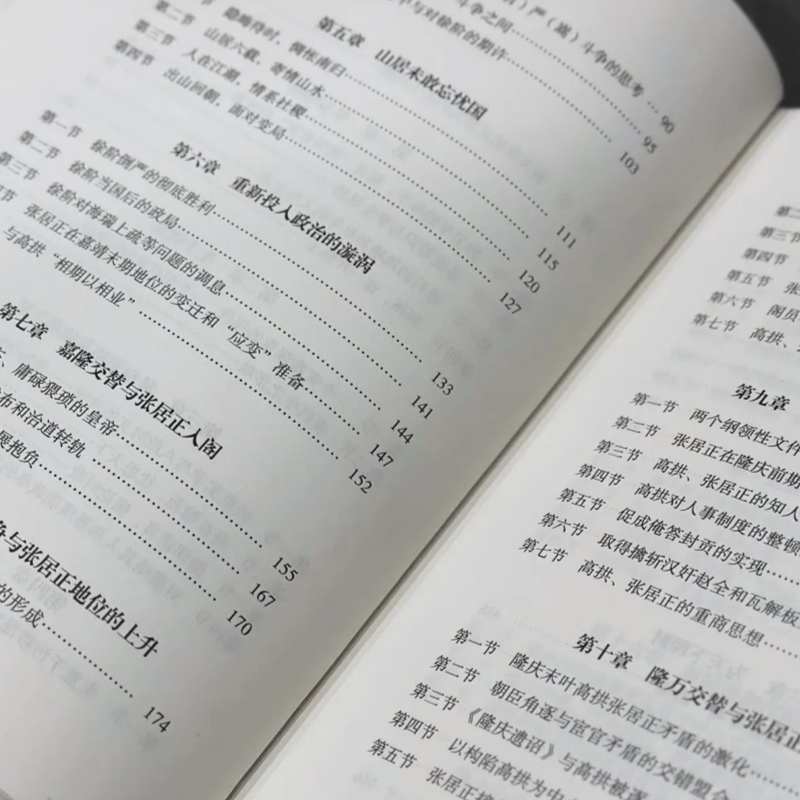 严（嵩）斗争的思考…90
斗争之间…95
中与对徐阶的期许…103
第五章 山居未敢忘忧国
隐晦待时，惆怅南归…111
第二节 山居六载，寄情山水…115
第三节 人在江湖，情系社稷…120
第四节 出山回朝，面对变局…127
第六章 重新投入政治的漩涡
第一节 徐阶倒严的彻底胜利…133
第二节 徐阶当国后的政局…141
第三节 徐阶对海瑞上疏等问题的调息…144
张居正在嘉靖末期地位的变迁和“应变”准备…147
与高拱“相期以相业”…152
第七章 嘉隆交替与张居正入阁
庸碌猥琐的皇帝…155
布和治道转轨…167
展抱负…170
争与张居正地位的上升
的形成…174
第二
第三节
第四节
第五节 张
第六节 阁员
第七节 高拱、
第九章
第一节 两个纲领性文件
第二节 张居正在隆庆前期
第三节 高拱、张居正的知人
第四节 高拱对人事制度的整顿
第五节 促成俺答封贡的实现…
第六节 取得擒斩汉奸赵全和瓦解板
第七节 高拱、张居正的重商思想…
第十章 隆万交替与张居正
第一节 隆庆末叶高拱张居正矛盾的激化…
第二节 朝臣角逐与宦官矛盾的交错盟合
第三节 《隆庆遗诏》与高拱被逐
第四节 以构陷高拱为中
第五节 张居正接